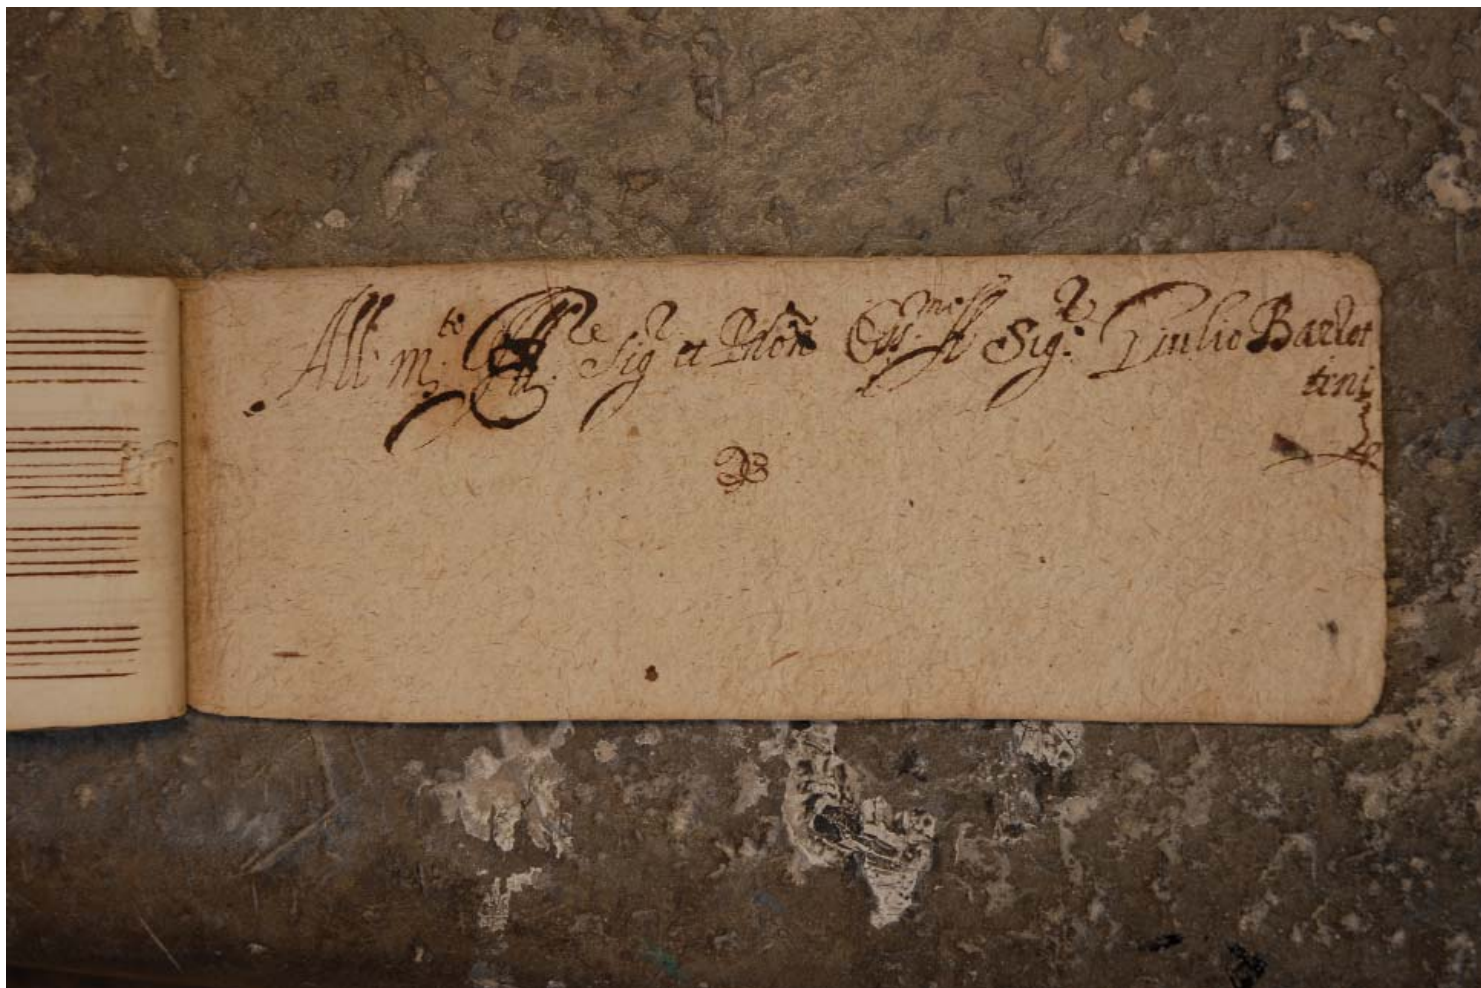 All m.to Ill.re Sig.r et P̃ron Oss.mo Il Sig.r Giulio Barlot
tini